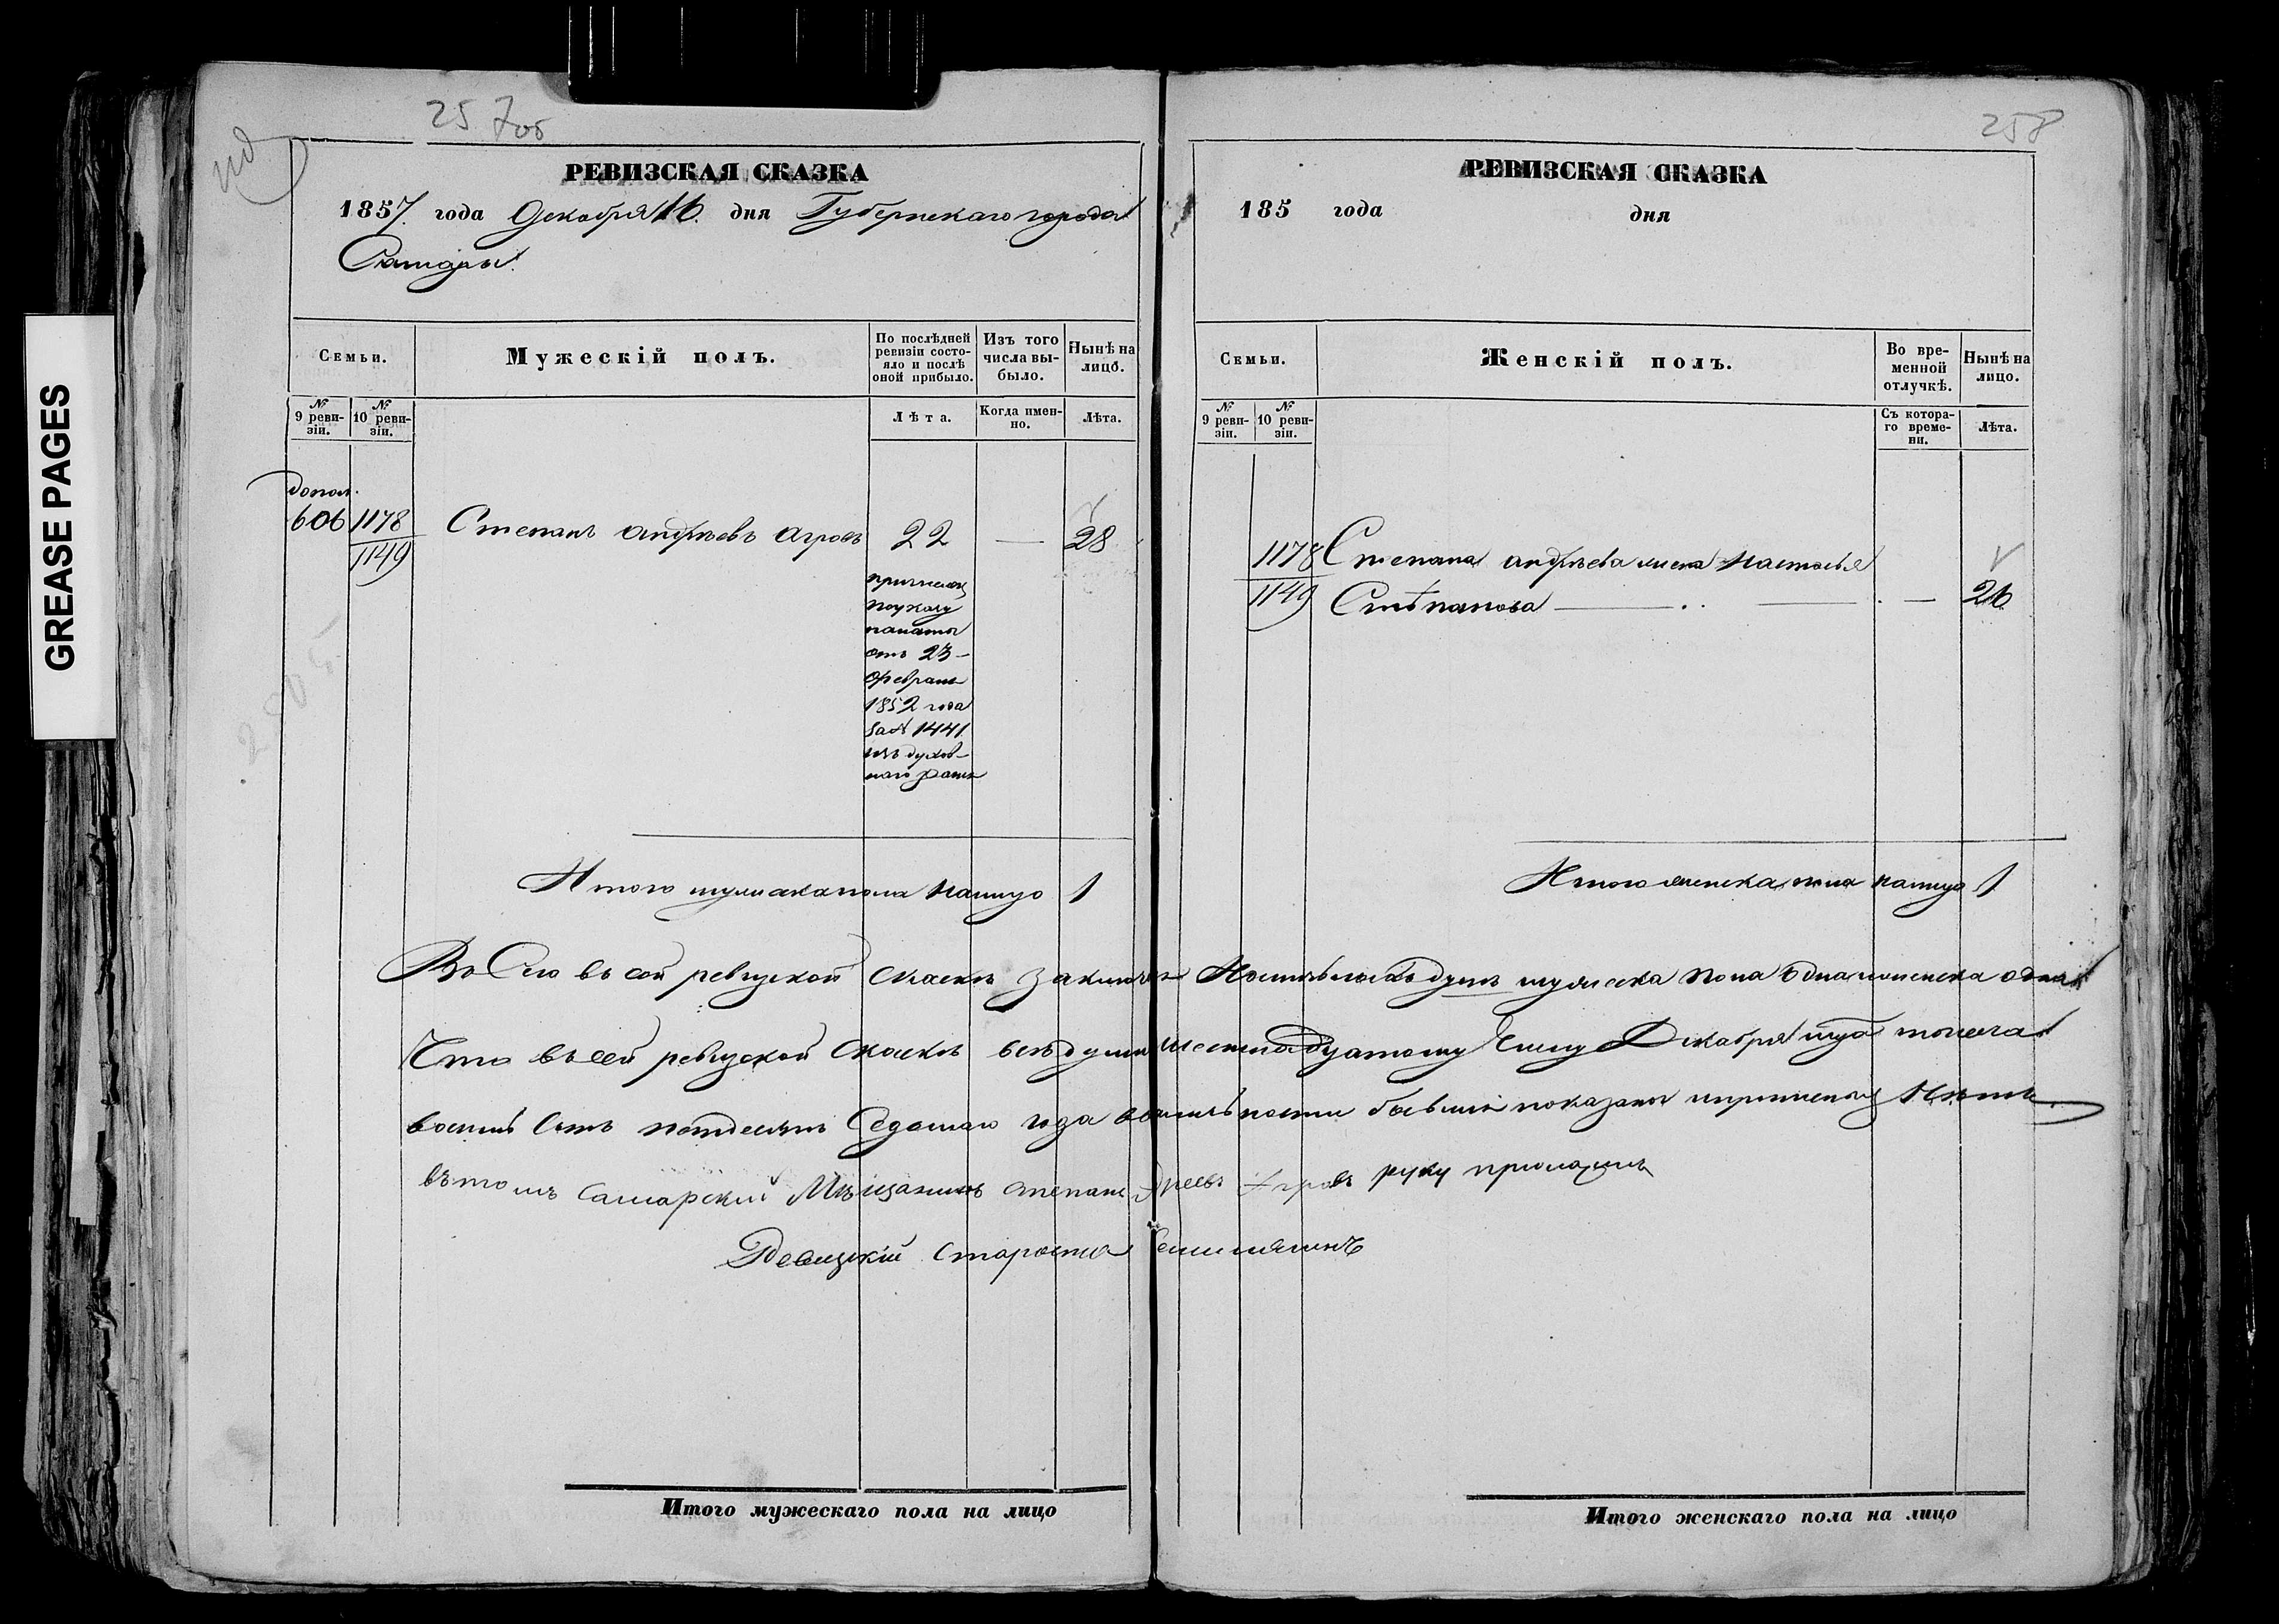 GREASE PAGES
257об
РЕВИЗСКАЯ СКАЗКА
1857 года Декабря 16 дня Губернскаго города
Самары.
Семьи.
Мужескій полъ.
По послѣдней ревизіи состо-
яло и послѣ оной прибыло.
Изъ того числа вы-
было.
Нынѣ на лицо.
№ 9 реви-
зіи.
№ 10 реви-
зіи.
Лѣта.
Когда имен-
но.
Лѣта.
допол.
606
1178
1149
Степанъ Андреевъ Агровъ
22
—
28
причислен
по указу
палаты
отъ 23
Февраля
1852 года
за № 1441
изъ духов-
наго зван
Итого мужска пола налицо 1
258
РЕВИЗСКАЯ СКАЗКА
185 года дня
Семьи.
Женскій полъ.
Во вре-
менной отлучкѣ.
Нынѣ на лицо.
№ 9 реви-
зіи.
№ 10 реви-
зіи.
Съ котора-
го време-
ни.
Лѣта.
1178
1149
Степана Андреева жена Настасья
Степанова — — 26
Итого женска пола налицо 1
Всего въ сей ревизской сказкѣ заключ душъ мужеска пола одна женска одна
Что въ сей ревизской сказкѣ всѣ души шестнадцатому числу Декабря тысеча
восемь сотъ пядесятъ седмаго года бывши показаны Нѣтъ
въ томъ самарский Мѣщанинъ степанъ Агровъ руку приложилъ
Ревизкій староста
Итого мужескаго пола на лицо
Итого женскаго пола на лицо